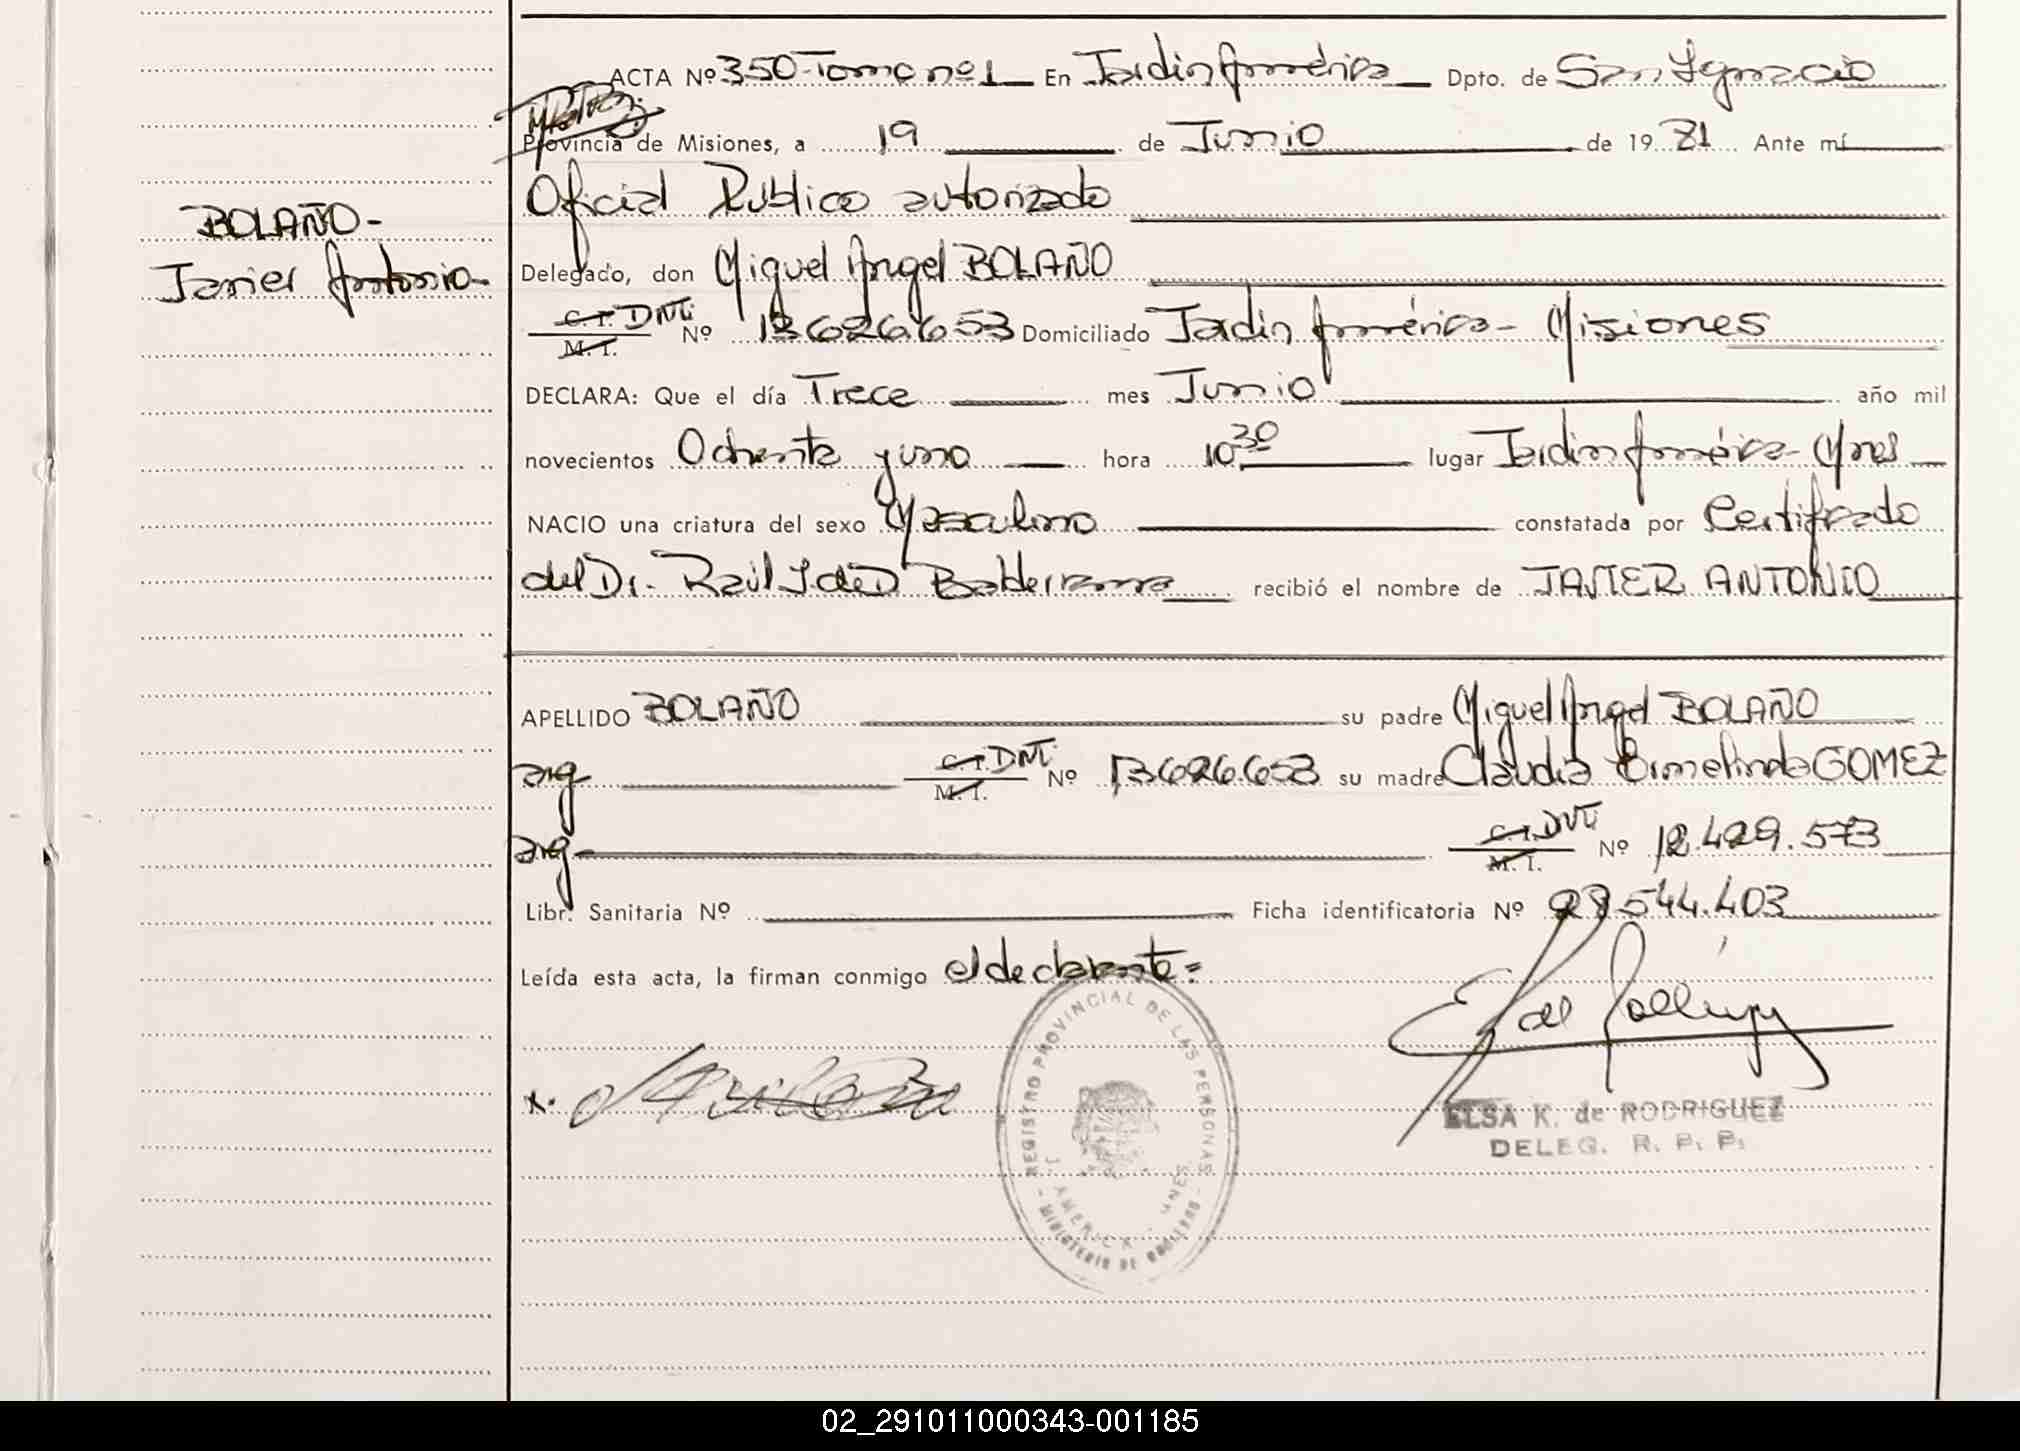 BOLAÑO-
Javier Antonio-
ACTA Nº 350-Tomo nº1 En Jardin América Dpto. de San Ignacio
Provincia de Misiones, a 19 de Junio de 1981 Ante mí
Oficial Publico autorizado
Delegado, don Miguel Angel BOLAÑO
C. I. DNI. M. I. Nº 13.626.653 Domiciliado Jardin América- Misiones
DECLARA: Que el día Trece mes Junio año mil
novecientos Ochenta y uno hora 10 30 lugar Jardin América- Mnes
NACIO una criatura del sexo Masculino constatada por Certificado
del Dr. Raúl Balderrama recibió el nombre de JAVIER ANTONIO
APELLIDO BOLAÑO su padre Miguel Angel BOLAÑO
arg C.I. DNI. M. I. Nº 13.626.653 su madre Claudia Ermelinda GOMEZ
arg- C.I. DNI M. I. Nº 12.429.573
Libr. Sanitaria Nº Ficha identificatoria Nº 28.544.403
Leída esta acta, la firman conmigo el declarante=
x.
REGISTRO PROVINCIAL DE LAS PERSONAS
AMERICA
- MINISTERIO DE GOBIERNO -
ELSA K. de RODRIGUEZ
DELEG. R. P. P.
02_291011000343-001185